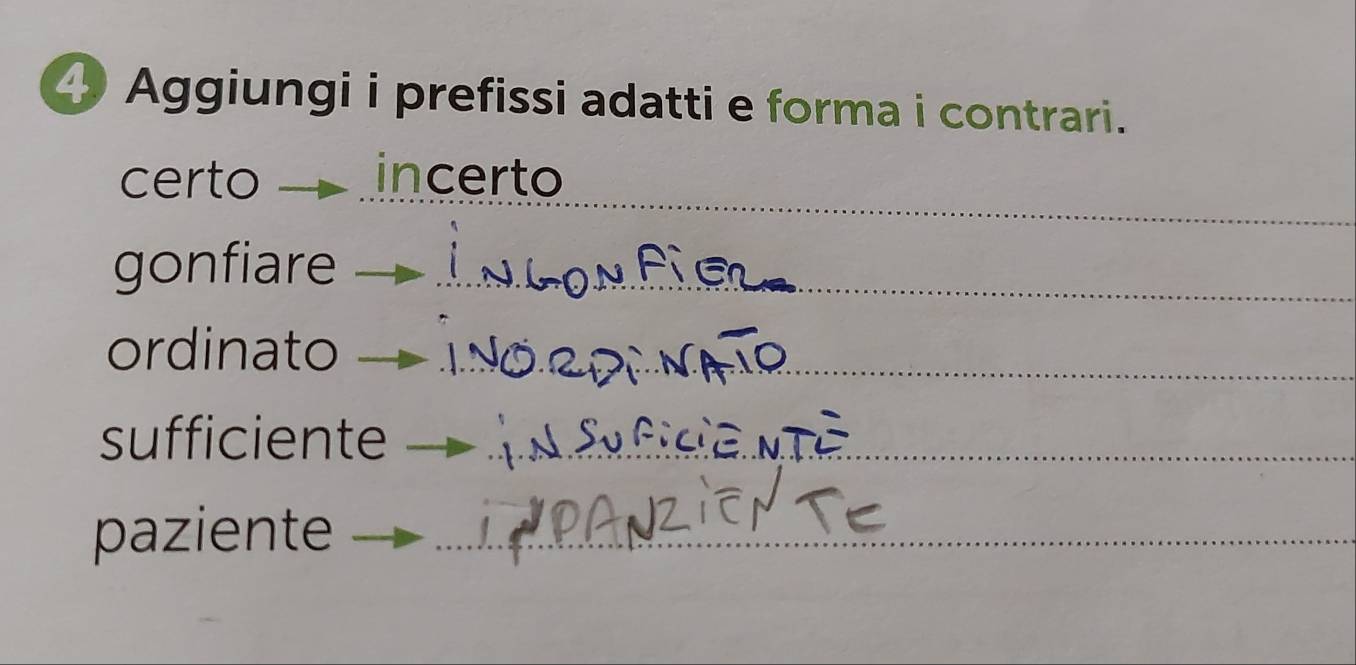 4 Aggiungi i prefissi adatti e forma i contrari.
certo → incerto
gonfiare → INGONFIER
ordinato → INORDINATO
sufficiente → INSUFICIENTE
paziente → INPANZIENTE